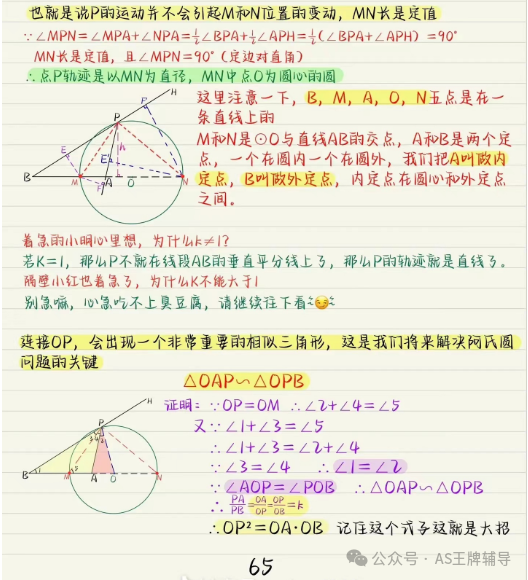 也就是说P的运动并不会引起M和N位置的变动，MN长是定值
∵∠MPN=∠MPA+∠NPA=½∠BPA+½∠APH=½(∠BPA+∠APH)=90°
MN长是定值，且∠MPN=90°(定边对直角)
∴点P轨迹是以MN为直径，MN中点O为圆心的圆
这里注意一下，B，M，A，O，N五点是在一
条直线上的
M和N是⊙O与直线AB的交点，A和B是两个定
点，一个在圆内一个在圆外，我们把A叫做内
定点，B叫做外定点，内定点在圆心和外定点
之间。
H
F
P
h
E
E
F
B
M
A
O
N
着急的小明心里想，为什么k≠1?
若K=1，那么P不就在线段AB的垂直平分线上了，那么P的轨迹就是直线了。
隔壁小红也着急了，为什么K不能大于1
别急嘛，心急吃不上臭豆腐，请继续往下看~😏
连接OP，会出现一个非常重要的相似三角形，这是我们将来解决阿氏圆
问题的关键
△OAP∽△OPB
证明：∵OP=OM ∴∠2+∠4=∠5
又∵∠1+∠3=∠5
∴∠1+∠3=∠2+∠4
∵∠3=∠4 ∴∠1=∠2
∵∠AOP=∠POB ∴△OAP∽△OPB
∴PA/PB=OA/OP=OP/OB=k
∴OP²=OA·OB 记住这个式子这就是大招
H
P
3
4
2
B
1
M
5
A
O
N
65
公众号·AS王牌辅导